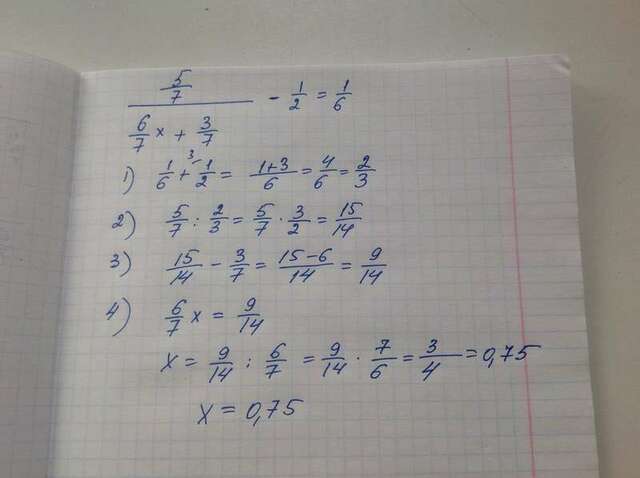 5/7 / (6/7 x + 3/7) - 1/2 = 1/6
1) 1/6 + 1/2 ³ = (1+3)/6 = 4/6 = 2/3
2) 5/7 : 2/3 = 5/7 · 3/2 = 15/14
3) 15/14 - 3/7 = (15-6)/14 = 9/14
4) 6/7 x = 9/14
x = 9/14 : 6/7 = 9/14 · 7/6 = 3/4 = 0,75
x = 0,75